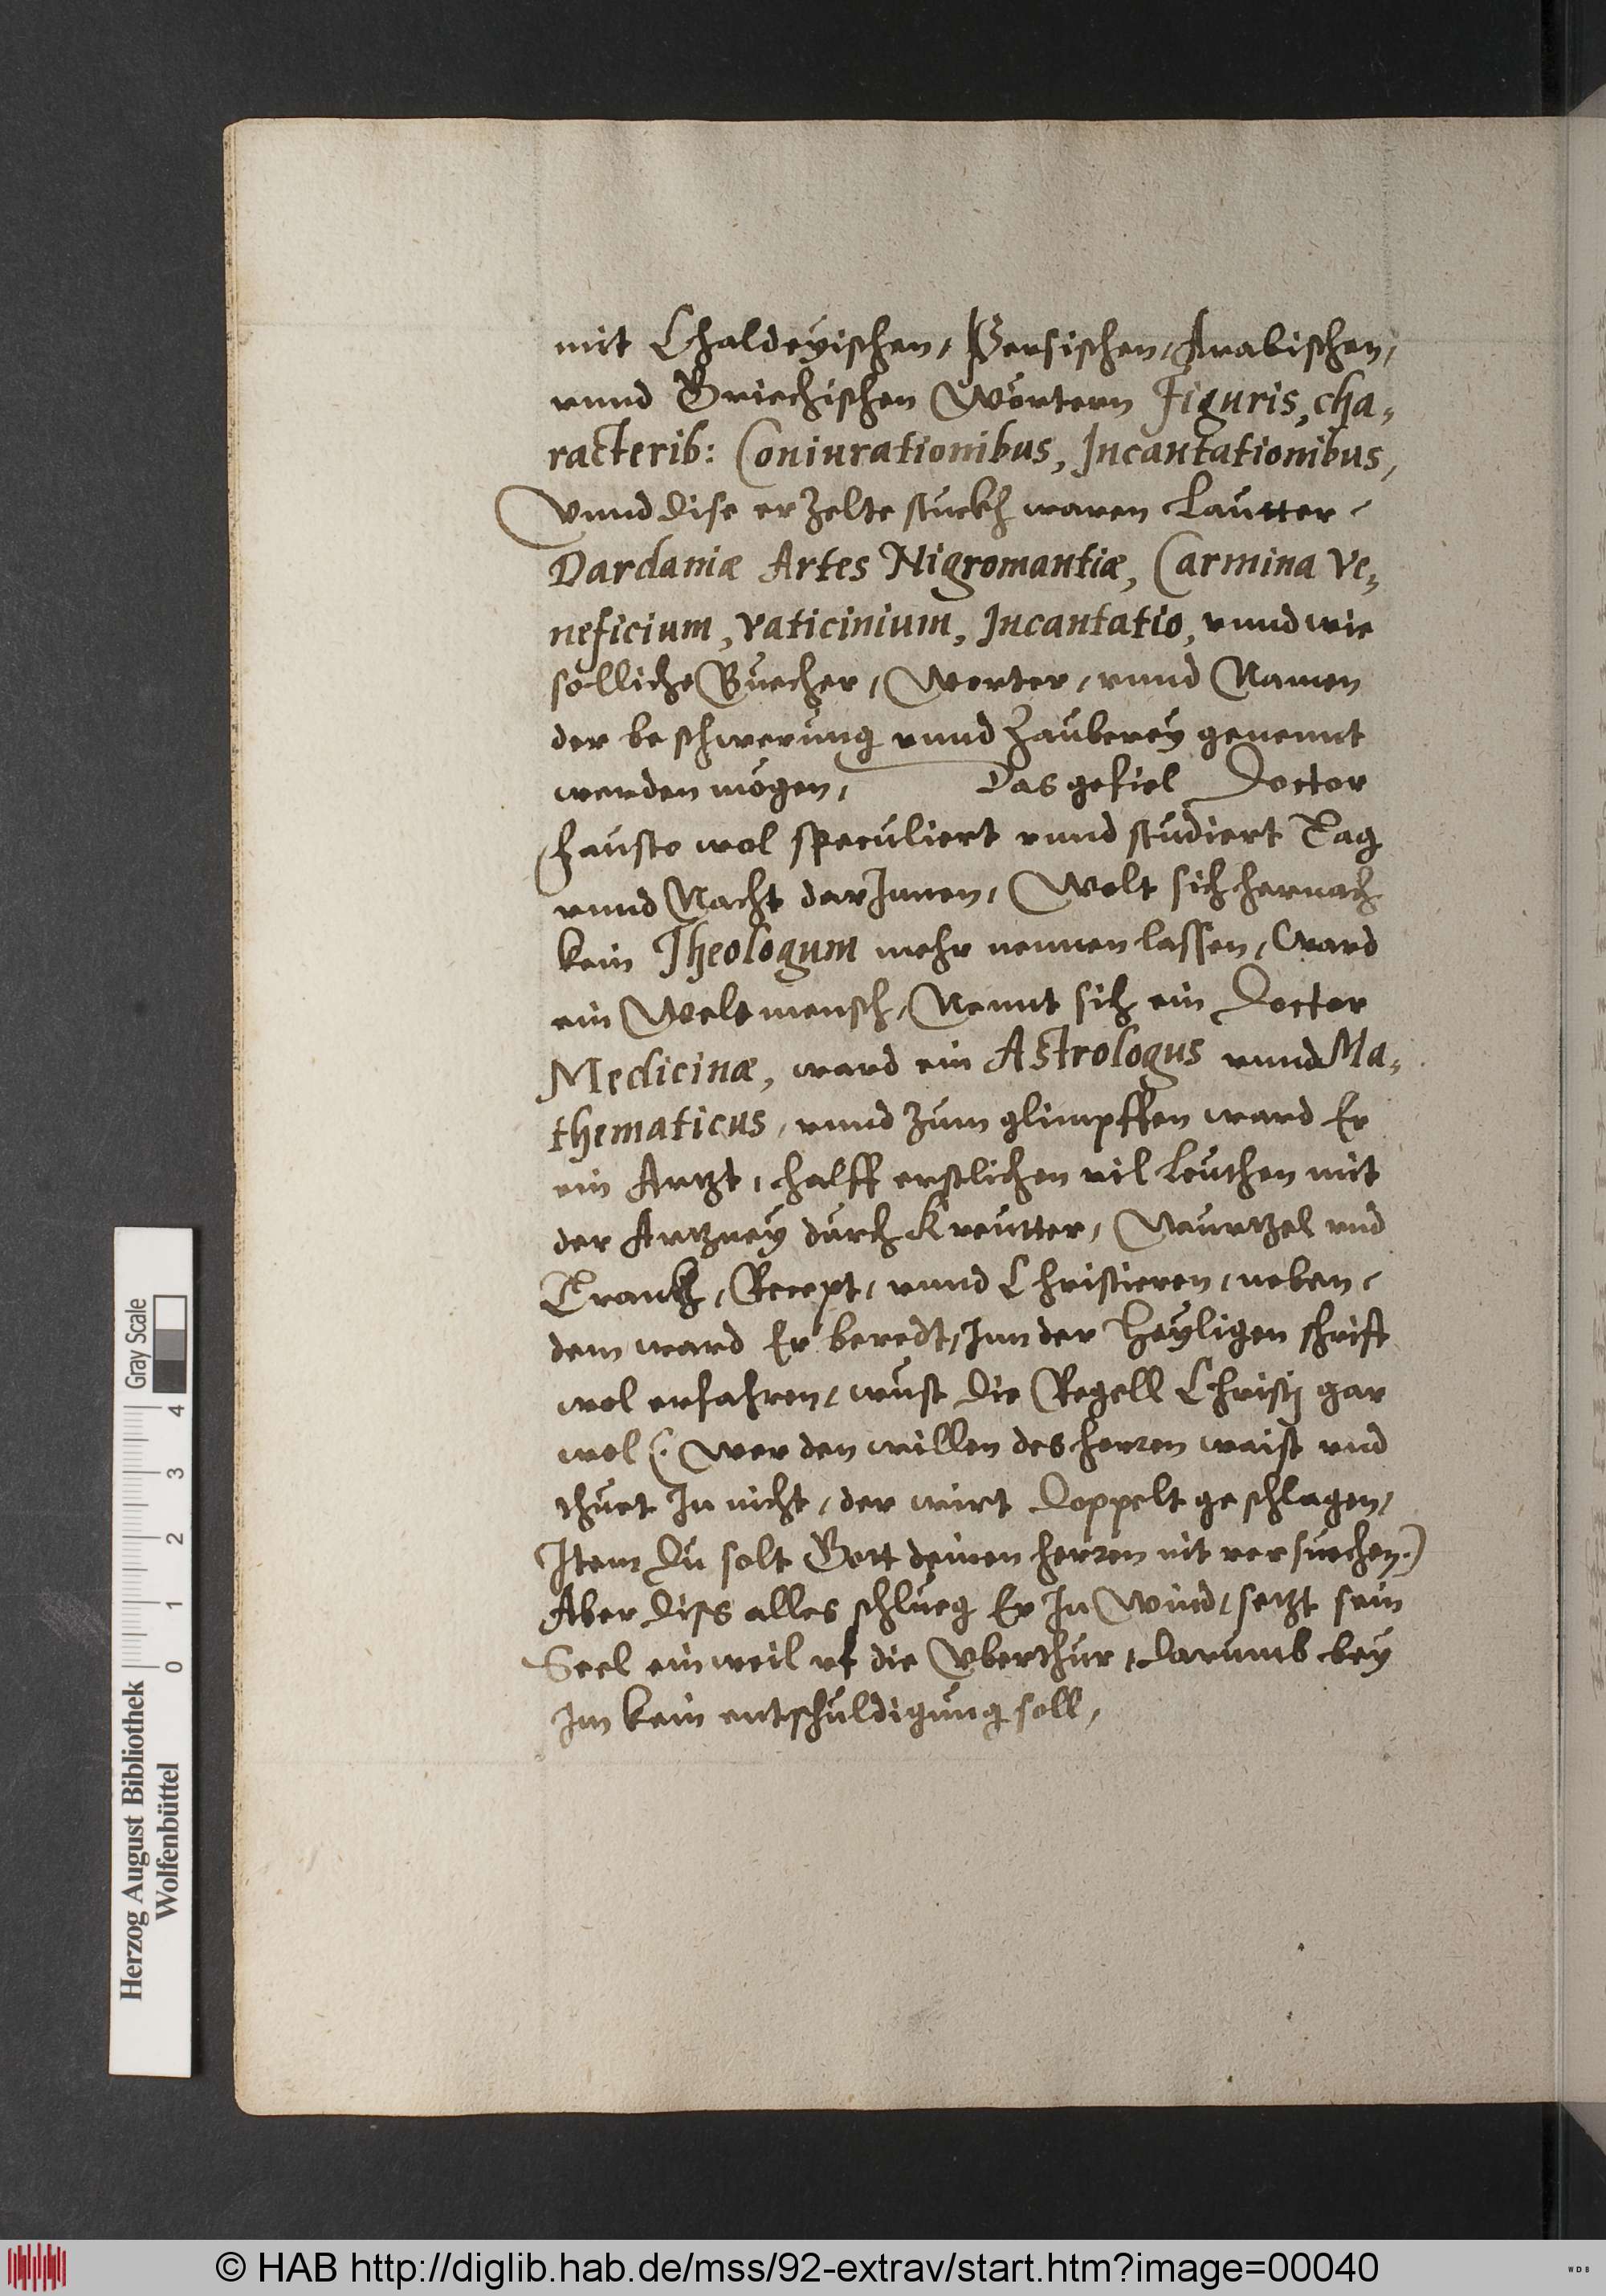 mit Chaldeyischen, Persischen, Arabischen,
vnnd Griechischen Wörtern Figuris, cha,
racterib: Coniurationibus, Incantationibus,
Vnnd dise erzelte stuckh waren Lautter
Dardaniæ Artes Nigromantiæ, Carmina Ve,
neficium, vaticinium, Incantatio, vnnd wie
sölliche Büecher, Worter, vnnd Namen
der beschwerung vnnd Zauberey genennt
werden mögen, Das gefiel Doctor
Fausto wol speculiert vnnd studiert Tag
vnnd Nacht darJnnen, Wolt sich hernach
kein Theologum mehr nennen lassen, Ward
ein Weltmensch, Nennt sich ein Doctor
Medicinæ, ward ein Astrologus vnnd Ma,
thematicus, vnnd zum glimpffen ward Er
ein Artzt, halff erstlichen vil Leuthen mit
der Artzney durch Kreutter, Wurtzel vnd
Tranckh, Recept, vnnd Christieren, neben
dem ward Er beredt, Jnn der Heyligen schrifft
wol erfahren, wust die Regell Christj gar
wol (: Wer den willen des herren waist vnd
thuet Jn nicht, der wirt doppelt geschlagen,
Item Du solt Gott deinen herren nit versuechen.)
Aber diss alles schlueg Er Jn Wind, setzt sein
Seel ein weil vf die Vberthur, darumb bey
Jm kein entschuldigung soll,
Herzog August Bibliothek
Wolfenbüttel
Gray Scale
0 1 2 3 4
© HAB http://diglib.hab.de/mss/92-extrav/start.htm?image=00040
WDB